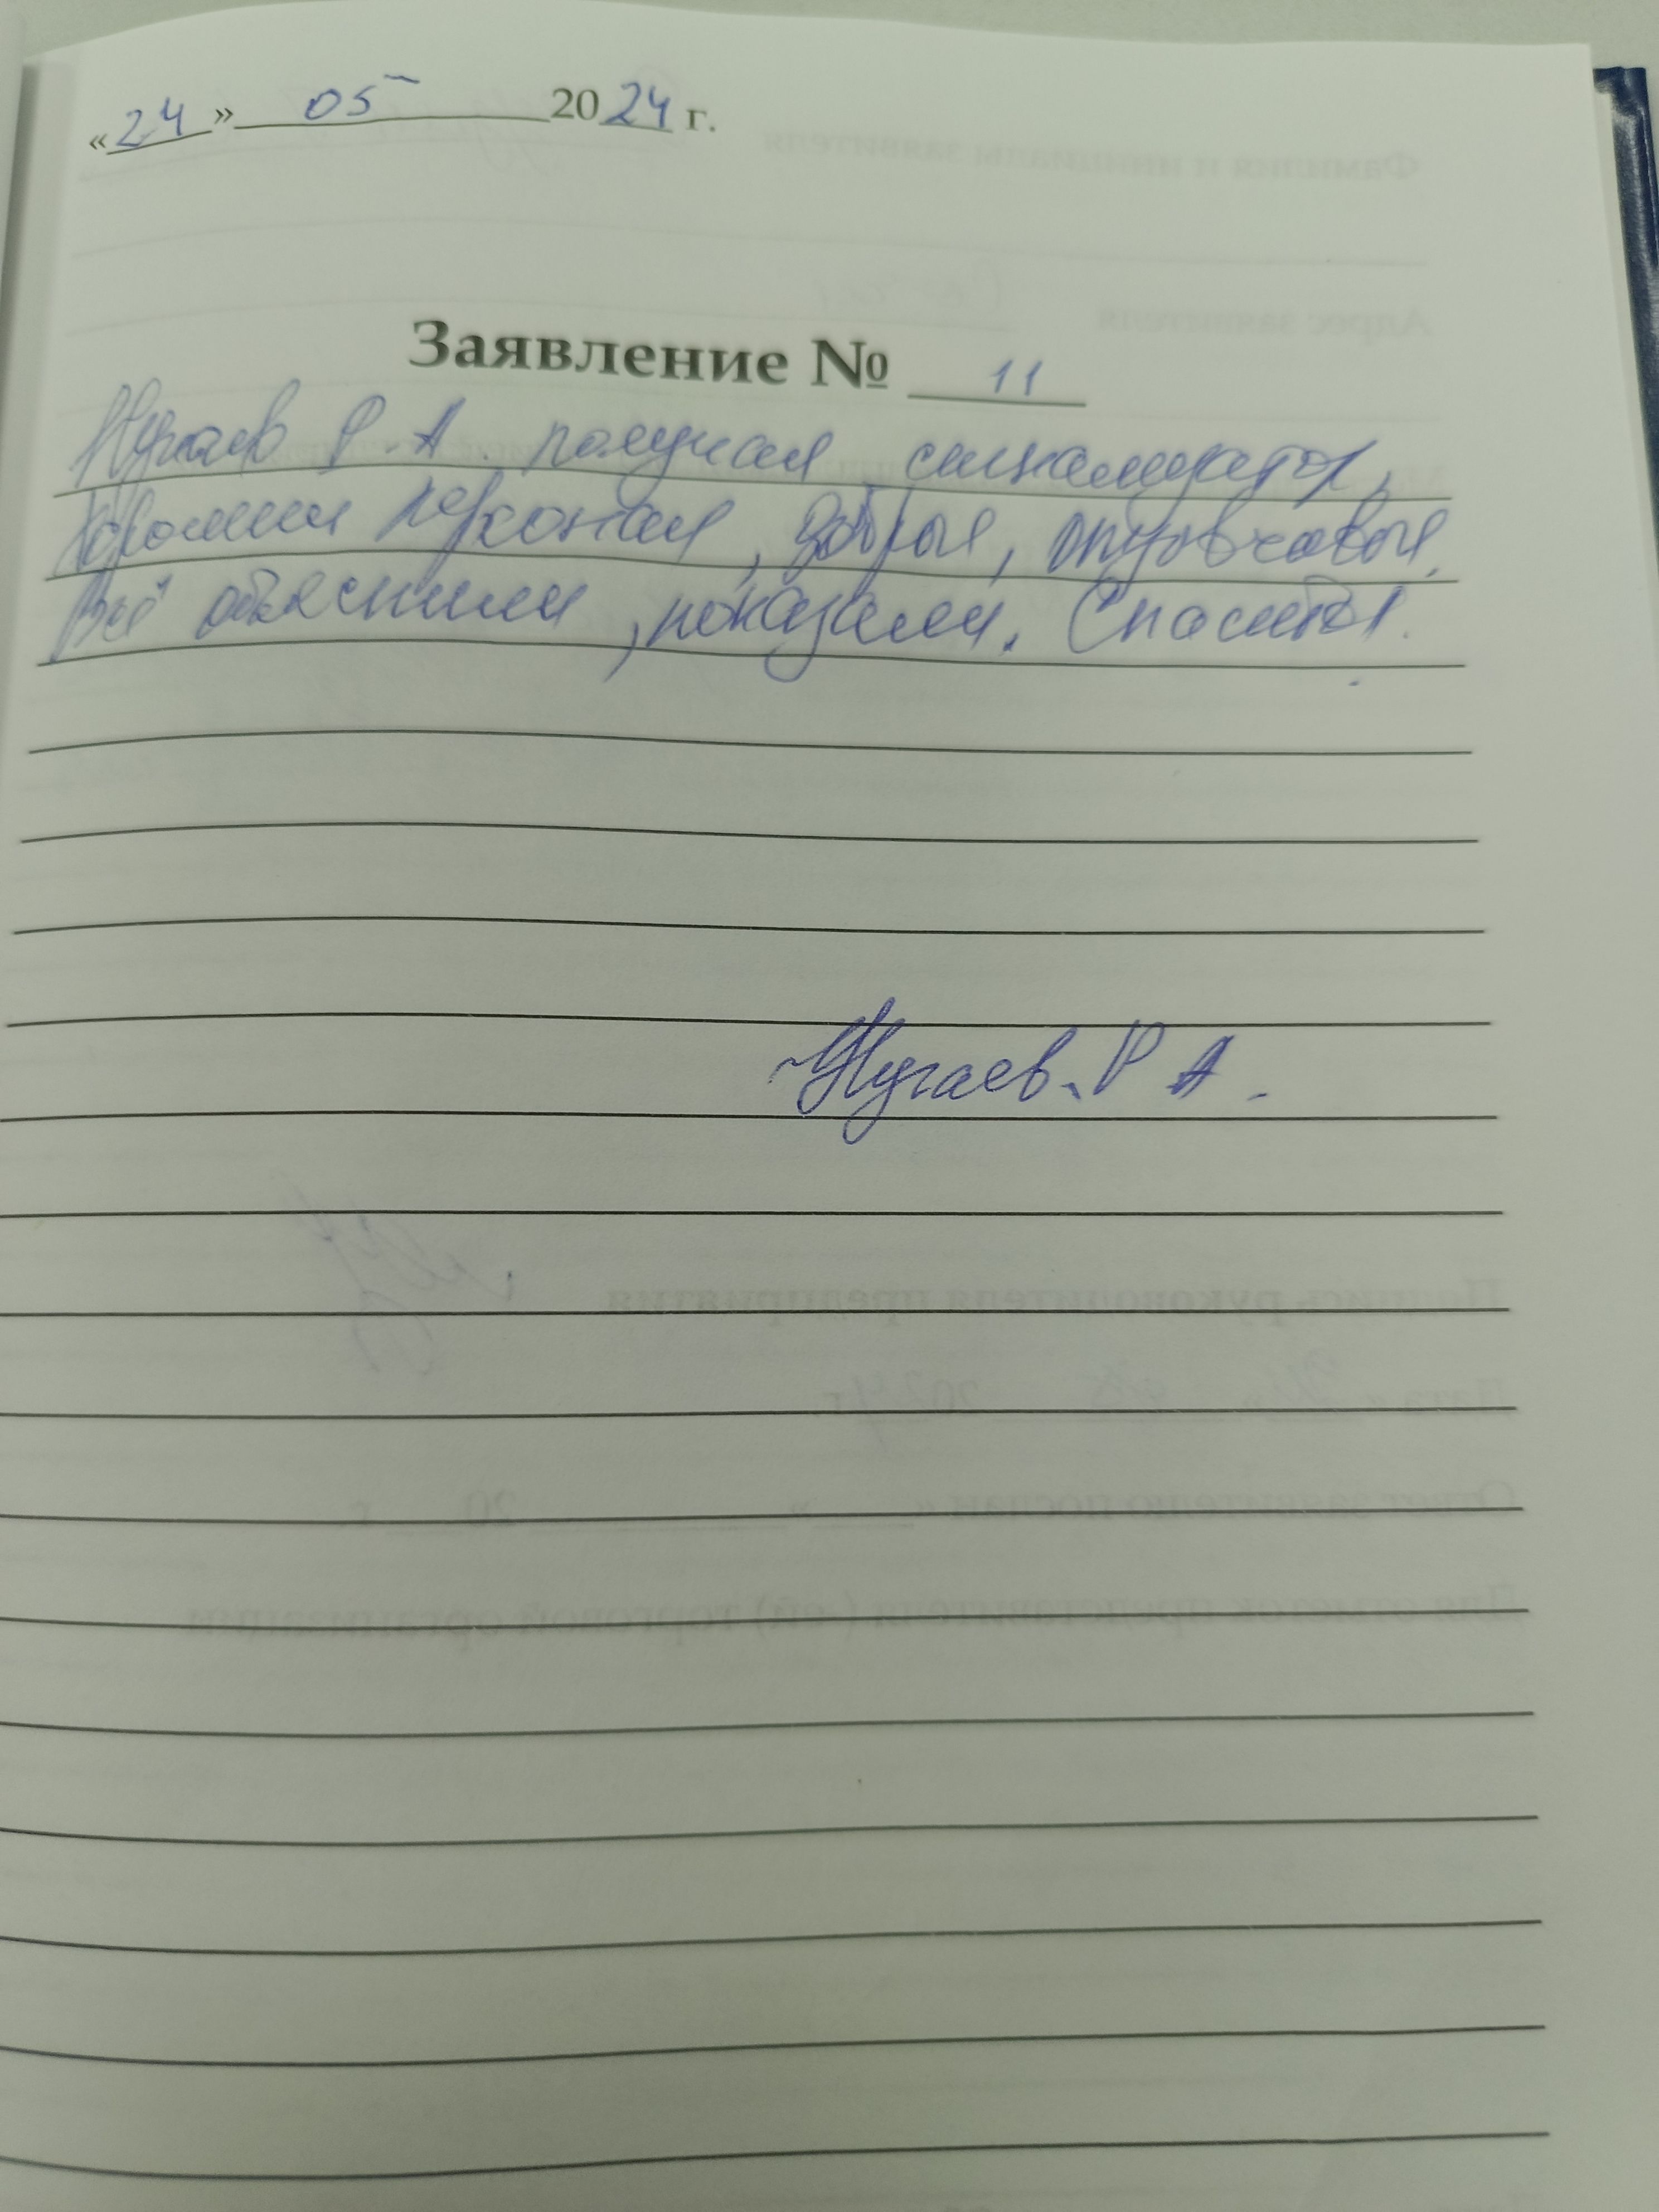 «24» 05 2024 г.
Заявление № 11
Нугаев Р. А. получил сигнализатор,
Хороший персонал, добрые, отзывчивые,
Всё объяснили, показали. Спасибо.
Нугаев. Р А.